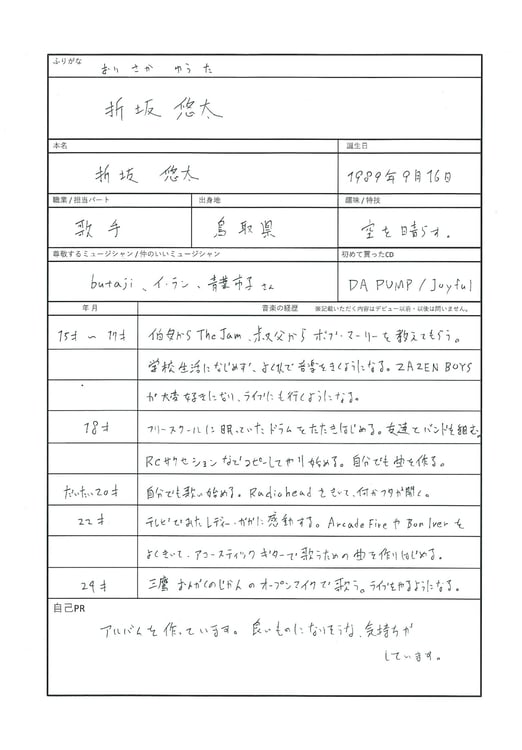 ふりがな
おりさか ゆうた
折坂 悠太
本名 誕生日
折坂 悠太 1989年9月16日
職業/担当パート 出身地 趣味/特技
歌手 鳥取県 空を晴らす。
尊敬するミュージシャン/仲のいいミュージシャン 初めて買ったCD
butaji、イ・ラン、青葉市子さん DA PUMP / Joyful
年月 音楽の経歴 ※記載いただく内容はデビュー以前・以後は問いません。
15才 〜 17才 伯父から The Jam、叔父から ボブ・マーリーを教えてもらう。
学校生活になじめず、よく1人で音楽をきくようになる。ZAZEN BOYS
が大好きになり、ライブにも行くようになる。
18才 フリースクールに眠っていたドラムをたたきはじめる。友達とバンドを組む。
RCサクセションなどコピーしてやり始める。自分でも曲を作る。
だいたい20才 自分でも歌い始める。Radioheadをきいて、何かフタが開く。
22才 テレビでみたレディー・ガガに感動する。Arcade Fire や Bon Iver を
よくきいて、アコースティックギターで歌うための曲を作りはじめる。
24才 三鷹 おんがくのじかん のオープンマイクで歌う。ライブをやるようになる。
自己PR
アルバムを作っています。良いものになりそうな、気持ちが
しています。